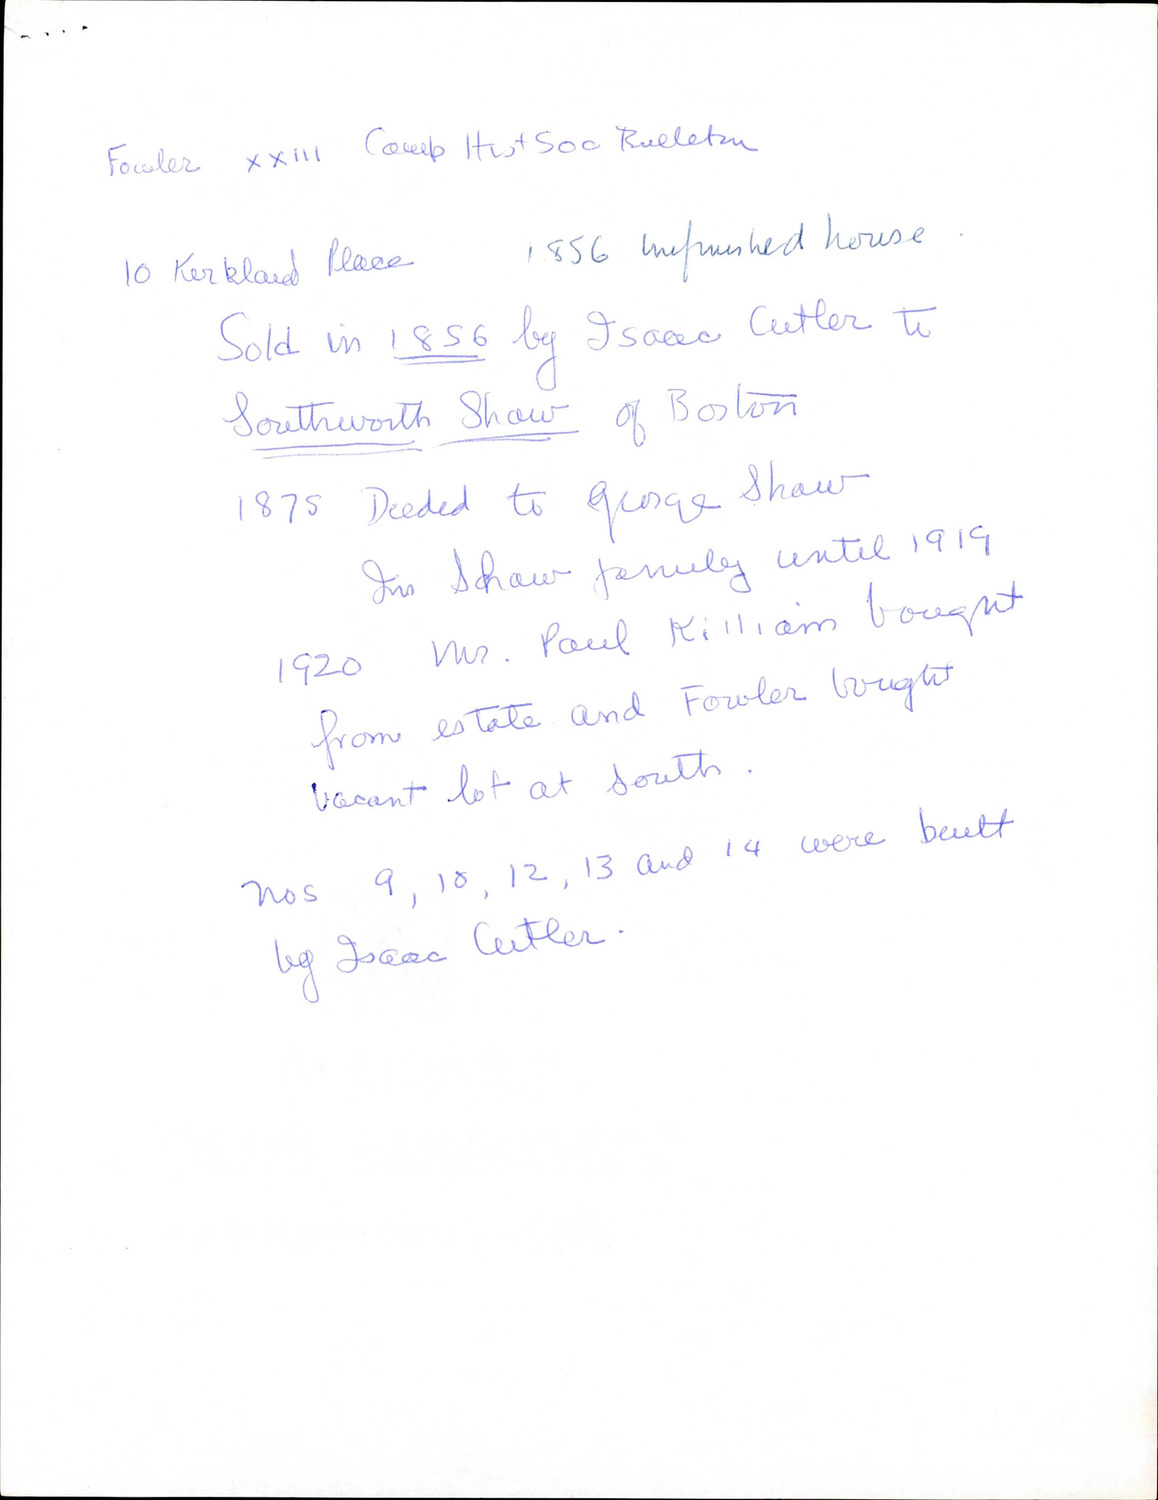 Fowler XXIII Camb Hist Soc Bulletin
10 Kirkland Place 1856 unfinished house.
Sold in 1856 by Isaac Cutler to
Southworth Shaw of Boston
1875 Deeded to George Shaw
In Shaw family until 1919
1920 Mr. Paul Killiam bought
from estate and Fowler bought
vacant lot at South.
Nos 9, 10, 12, 13 and 14 were built
by Isaac Cutler.